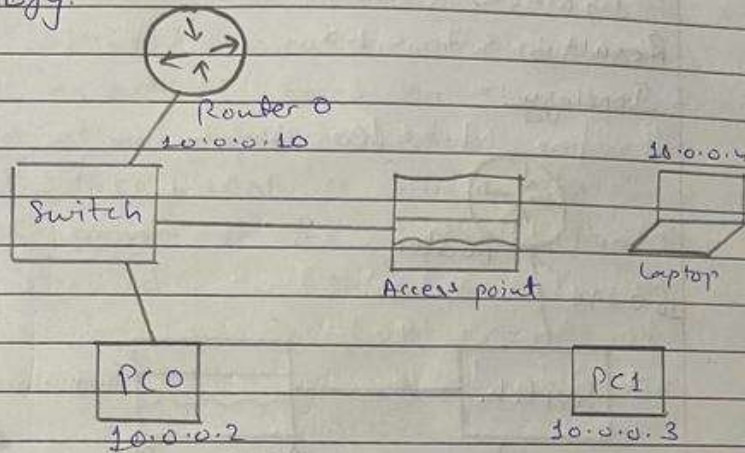 Router 0
10.0.0.10
Switch
Access point
Laptop
PC0
10.0.0.2
PC1
10.0.0.3